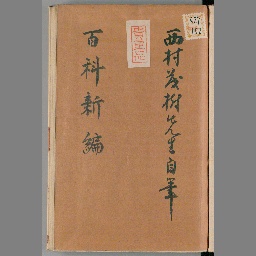 西村茂樹先生自筆
百科新編